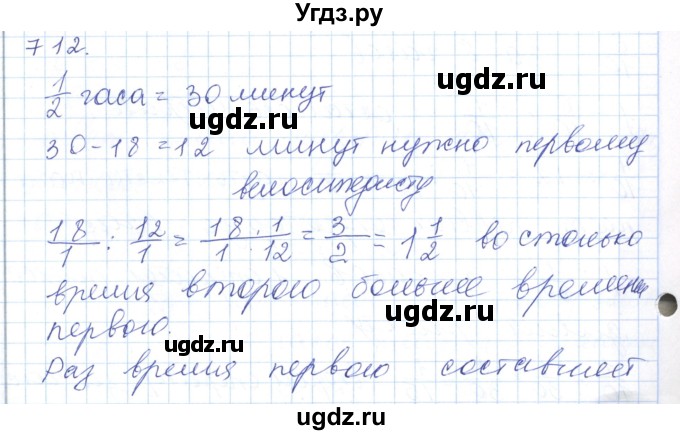 Угдз.ру
712.
ugdz.ru
1/2 часа = 30 минут
ugdz.ru
30-18=12 минут нужно первому
велосипедисту
ugdz.ru
18/1 : 12/1 = 18·1/1·12 = 3/2 = 1 1/2 во столько
время второго больше времени
ugdz.ru
первого.
ugdz.ru
Раз время первого составляет
ugdz.ru